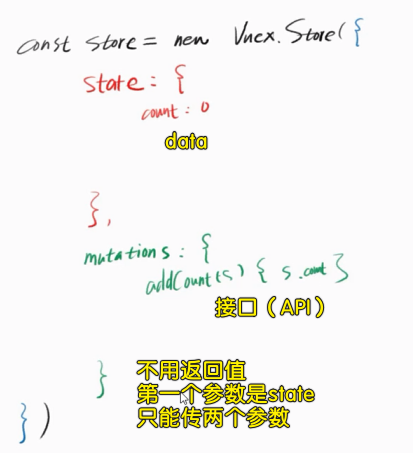 const store = new Vuex.Store({
state: {
count: 0
data
},
mutations: {
addCount(s) { s.count }
接口（API）
} 不用返回值
第一个参数是state
只能传两个参数
})